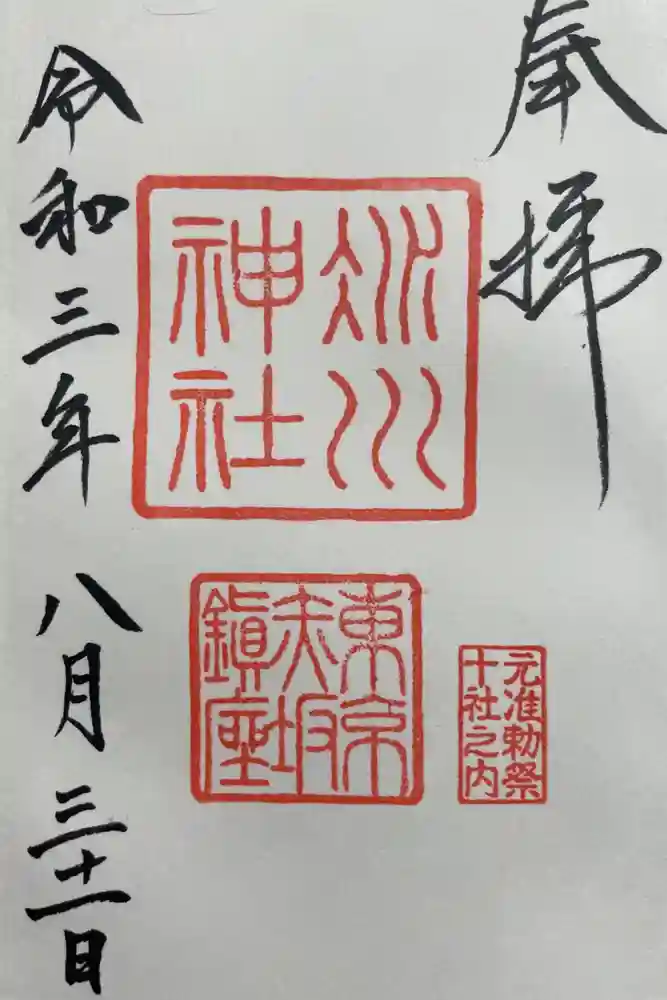 奉拝
氷川
神社
東京
赤坂
鎮座
元准勅祭
十社之内
令和三年八月三十一日